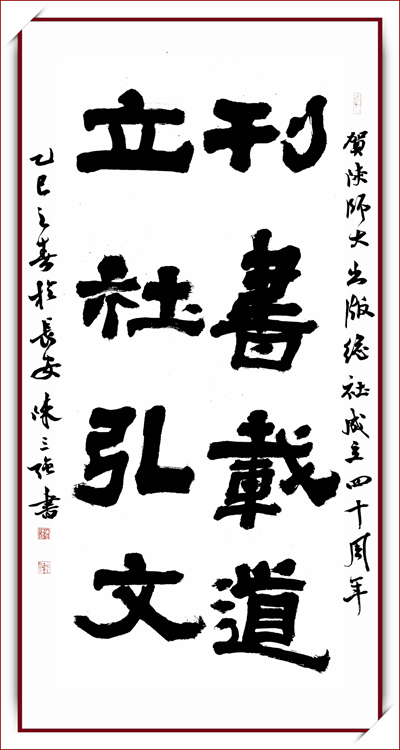 賀陕師大出版總社成立四十周年
刊書載道
立社弘文
乙巳之春於長安陳三强書